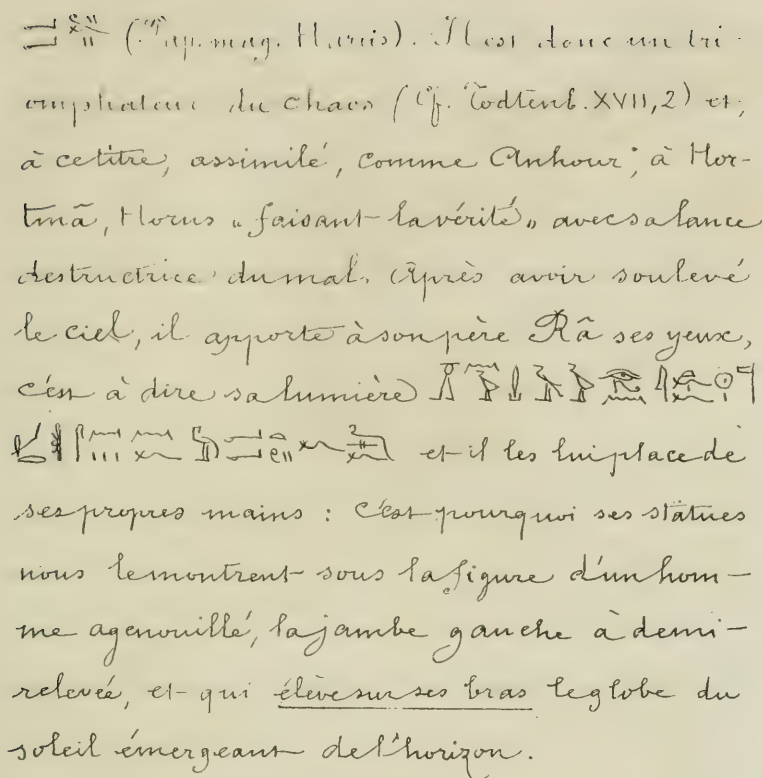 (Pap. mag. Harris). Il est donc un tri-
omphateur du chaos (Cf. Todtenb. XVII, 2) et,
à ce titre, assimilé, comme Anhour, à Hor-
tmâ, Horus „faisant la vérité„ avec sa lance
destructrice du mal. Après avoir soulevé
le ciel, il apporte à son père Râ ses yeux,
c'est à dire sa lumière
et il les lui place de
ses propres mains : c'est pourquoi ses statues
nous le montrent sous la figure d'un hom-
me agenouillé, la jambe gauche à demi-
relevée, et qui élève sur ses bras le globe du
soleil émergeant de l'horizon.